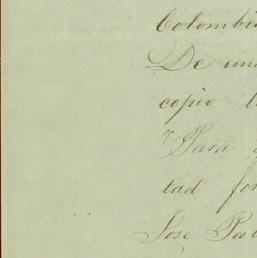 Colombi
De un
copio
Para
tad for
José Pa